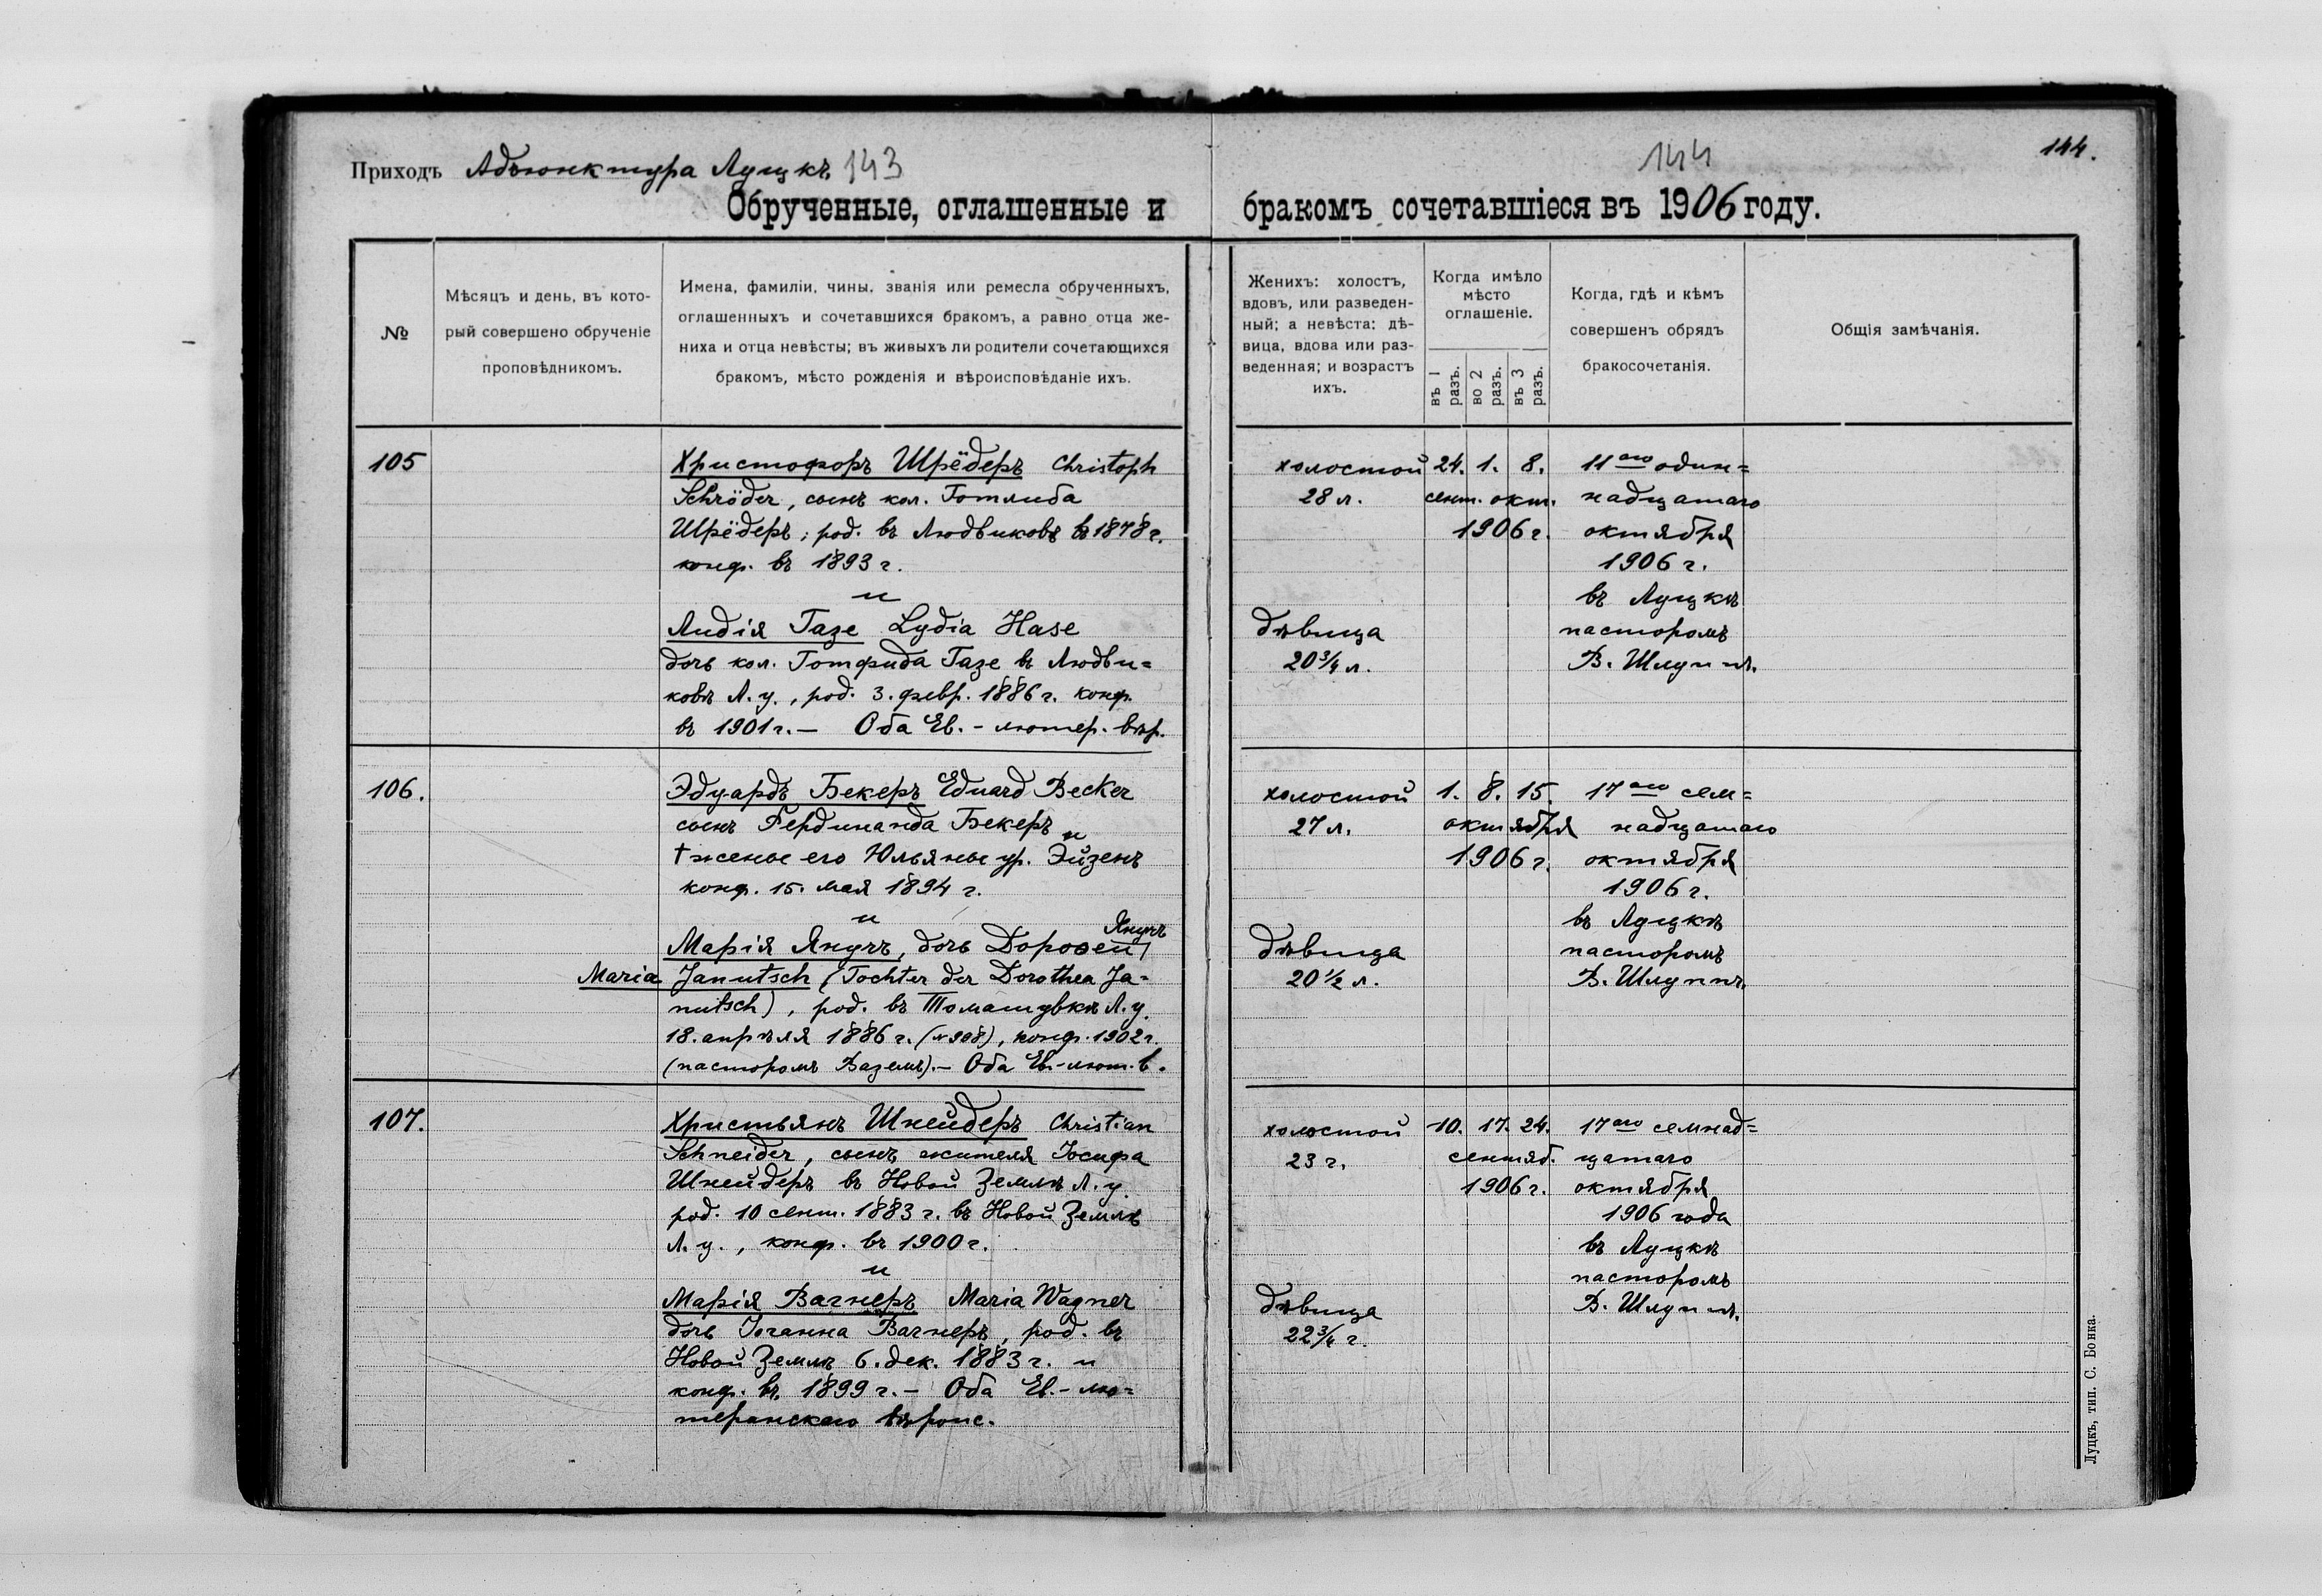 Приходъ Адъюнктура Луцкъ 143
Обрученные, оглашенные и
№
Мѣсяцъ и день, въ кото-
рый совершено обрученіе
проповѣдникомъ.
Имена, фамиліи, чины, званія или ремесла обрученныхъ,
оглашенныхъ и сочетавшихся бракомъ, а равно отца же-
ниха и отца невѣсты; въ живыхъ ли родители сочетающихся
бракомъ, мѣсто рожденія и вѣроисповѣданіе ихъ.
105
Христофоръ Шрёдеръ Christoph
Schröder, сынъ кол. Готлиба
Шрёдеръ; род. въ Людвиковѣ въ 1878 г.
конф. въ 1893 г.
и
Лидія Газе Lydia Hase
дочь кол. Готфрида Газе въ Людви=
ковѣ Л. у., род. 3. февр. 1886 г. конф.
въ 1901 г. — Оба Ев.- лютер. вѣр.
106.
Эдуардъ Бекеръ Eduard Becker
сынъ Фердинанда Бекеръ и
† жены его Юльяны ур. Эйзенъ
конф. 15. мая 1894 г.
и
Янучъ
Марія Янучъ, дочь Доровеи
Maria Janutsch (Tochter der Dorothea Ja-
nutsch), род. въ Томашувкѣ Л. у.
18. апрѣля 1886 г. (№ 908), конф. 1902 г.
(пасторомъ Ваземъ). — Оба Ев.-лют. в.
107.
Христьянъ Шнейдеръ Christian
Schneider, сынъ жителя Іосифа
Шнейдеръ въ Новой Землѣ Л. у.
род. 10 сент. 1883 г. въ Новой Землѣ
Л. у., конф. въ 1900 г.
и
Марія Вагнеръ Maria Wagner
дочь Іоганна Вагнеръ, род. въ
Новой Землѣ 6. дек. 1883 г. и
конф. въ 1899 г. — Оба Ев.- лю=
теранскаго вѣроис.
144
144.
бракомъ сочетавшіеся въ 1906 году.
Женихъ: холостъ,
вдовъ, или разведен-
ный; а невѣста: дѣ-
вица, вдова или раз-
веденная; и возрастъ
ихъ.
Когда имѣло
мѣсто
оглашеніе.
въ 1 разъ.
во 2 разъ.
въ 3 разъ.
Когда, гдѣ и кѣмъ
совершенъ обрядъ
бракосочетанія.
Общія замѣчанія.
холостой 24. 1. 8. 11 аго один=
28 л. сент. окт. надцатаго
1906 г. октября
1906 г.
въ Луцкѣ
дѣвица пасторомъ
20 3/4 л. В. Шлуппъ.
холостой 1. 8. 15. 17 аго сем=
27 л. октября надцатаго
1906 г. октября
1906 г.
въ Луцкѣ
дѣвица пасторомъ
20 1/2 л. В. Шлуппъ.
холостой 10. 17. 24. 17 аго семнад=
23 г. сентяб. цатаго
1906 г. октября
1906 года
въ Луцкѣ
пасторомъ
дѣвица В. Шлуппъ.
22 3/4 г.
Луцкъ, тип. С. Бонка.